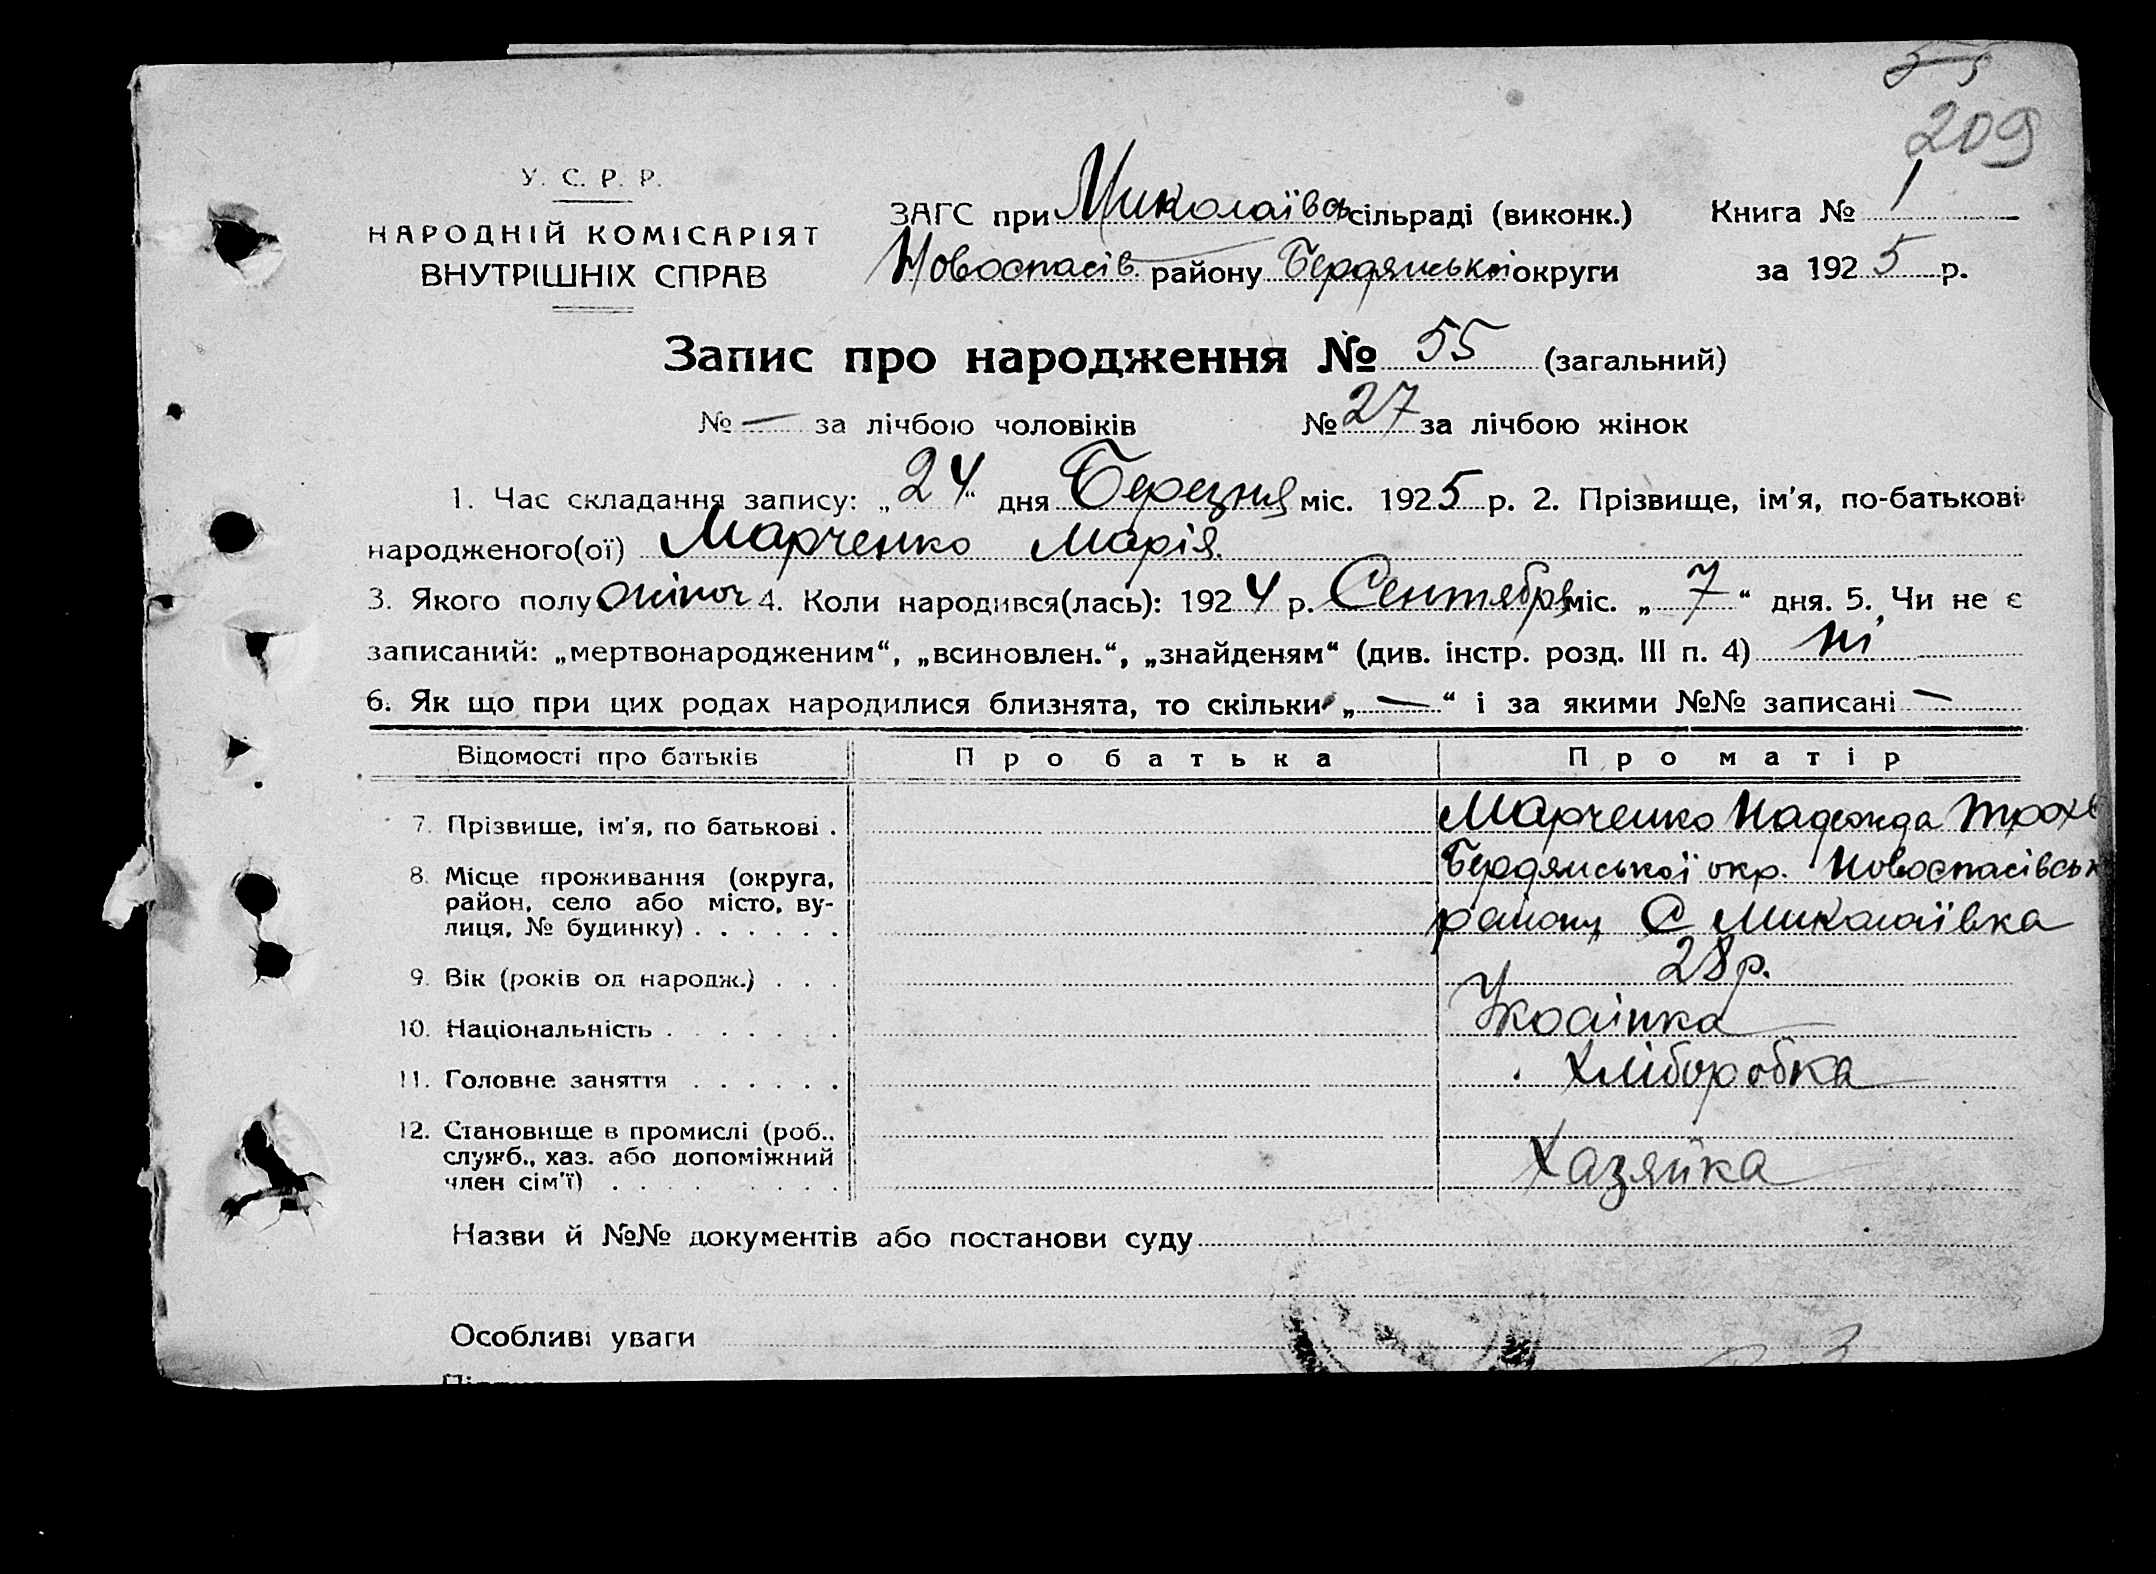 55
209
У. С. Р. Р.
НАРОДНІЙ КОМІСАРІЯТ
ВНУТРІШНІХ СПРАВ
ЗАГС при Миколаївс сільраді (виконк.) Книга № 1
Новоспасів. району Бердянської округи за 1925 р.
Запис про народження № 55 (загальний)
№ — за лічбою чоловіків № 27 за лічбою жінок
1. Час складання запису: „24“ дня Березня міс. 1925 р. 2. Прізвище, ім'я, по-батькові
народженого(ої) Марченко Марія.
3. Якого полу жіноч 4. Коли народився(лась): 1924 р. Сентября міс. „7“ дня. 5. Чи не є
записаний: „мертвонародженим“, „всиновлен.“, „знайденям“ (див. інстр. розд. III п. 4) ні
6. Як що при цих родах народилися близнята, то скільки „—“ і за якими №№ записані —
Відомості про батьків Про батька Про матір
7. Прізвище, ім'я, по батькові . Марченко Надежда Трохв
8. Місце проживання (округа, Бердянської окр. Новоспасівськ
район, село або місто, ву-
лиця, № будинку) . . . . . . району С Миколаївка
9. Вік (років од народж.) . . . 28 р.
10. Національність . . . . . . . Украінка
11. Головне заняття . . . . . . Хліборобка
12. Становище в промислі (роб.,
служб., хаз. або допоміжний
член сім'ї) . . . . . . . . . Хазяйка
Назви й №№ документів або постанови суду
Особливі уваги